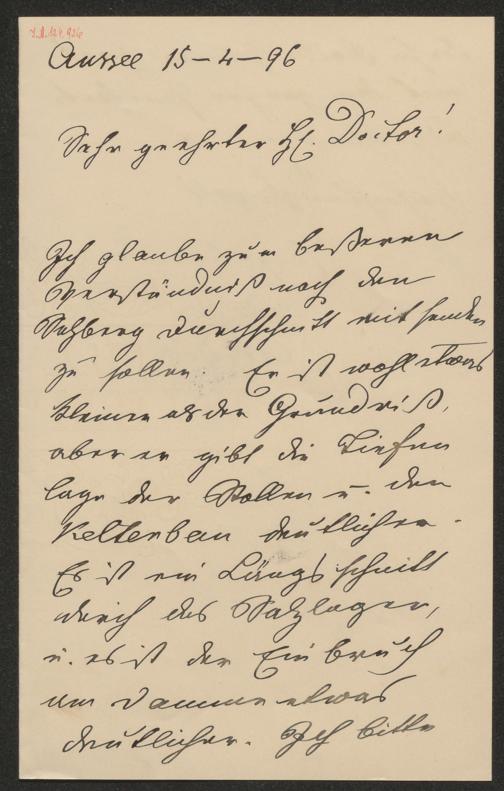 I.N. 124.926
Aussee 15-4-96
Sehr geehrter H. Doctor!
Ich glaube zum besseren
Verständniß noch den
Salzberg Durchschnitt mit senden
zu sollen. Er ist wohl etwas
kleiner als der Grundriß,
aber er gibt die Tiefen
lage der Stollen u. den
Keltenbau deutlicher.
Es ist ein Längsschnitt
durch das Salzlager,
u. es ist der Einbruch
am Damme etwas
deutlicher. Ich bitte